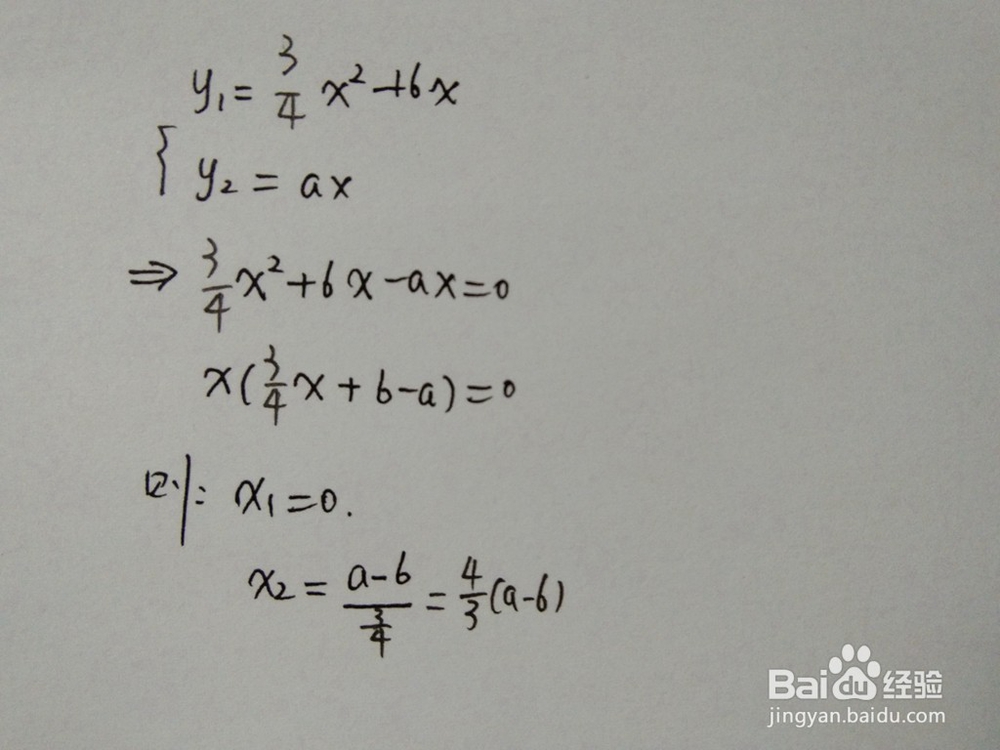 y₁ = 3/4 x² + 6x
{ y₂ = ax
⇒ 3/4 x² + 6x - ax = 0
x(3/4 x + 6 - a) = 0
则: x₁ = 0.
x₂ = (a-6)/(3/4) = 4/3 (a-6)
Baidu经验
jingyan.baidu.com